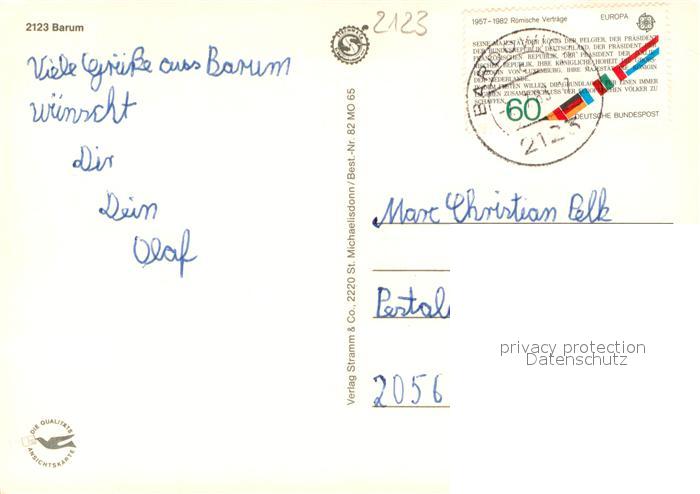 2123 Barum
Viele Grüße auss Barum
wünscht
Dir
Dein
Olaf
DIE QUALITÄTS
ANSICHTSKARTE
Verlag Stramm & Co., 2220 St. Michaelisdonn/Best.-Nr. 82 MO 65
2123
1957–1982 Römische Verträge
EUROPA
SEINE MAJESTÄT DER KÖNIG DER BELGIER, DER PRÄSIDENT
DER BUNDESREPUBLIK DEUTSCHLAND, DER PRÄSIDENT DER
FRANZÖSISCHEN REPUBLIK, DER PRÄSIDENT
REPUBLIK, IHRE KÖNIGLICHE HOHEIT
VON LUXEMBURG, IHRE MAJESTÄT
DER NIEDERLANDE,
FESTEN WILLEN, DIE GRUNDLAGEN EINEN IMMER
ZUSAMMENSCHLUSS DER VÖLKER ZU
SCHAFFEN
60
DEUTSCHE BUNDESPOST
2123
Marc Christian Pelk
Pestal
2056
privacy protection
Datenschutz